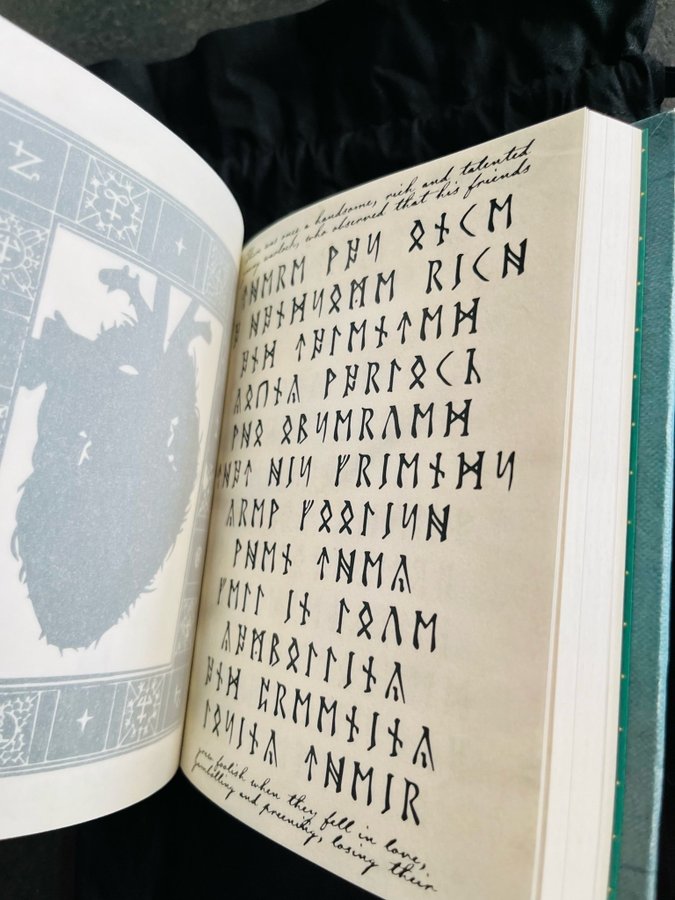 There was once a handsome, rich and talented
young warlock, who observed that his friends
ᛏᚺᛖᚱᛖ ᚹᚨᛋ ᛟᚾᚲᛖ
ᚨ ᚺᚨᚾᛞᛋᛟᛗᛖ ᚱᛁᚲᚺ
ᚨᚾᛞ ᛏᚨᛚᛖᚾᛏᛖᛞ
ᚣᛟᚢᚾᚣ ᚹᚨᚱᛚᛟᚲᚴ
ᚹᚺᛟ ᛟᛒᛋᛖᚱᚡᛖᛞ
ᛏᚺᚨᛏ ᚺᛁᛋ ᚠᚱᛁᛖᚾᛞᛋ
ᚣᚱᛖᚹ ᚠᛟᛟᛚᛁᛋᚺ
ᚹᚺᛖᚾ ᛏᚺᛖᚣ
ᚠᛖᛚᛚ ᛁᚾ ᛚᛟᚡᛖ
ᚣᚨᛗᛒᛟᛚᛚᛁᚾᚣ
ᚨᚾᛞ ᛈᚱᛖᛖᚾᛁᚾᚣ
ᛚᛟᛋᛁᚾᚣ ᛏᚺᛖᛁᚱ
grew foolish when they fell in love,
gambolling and preening, losing their